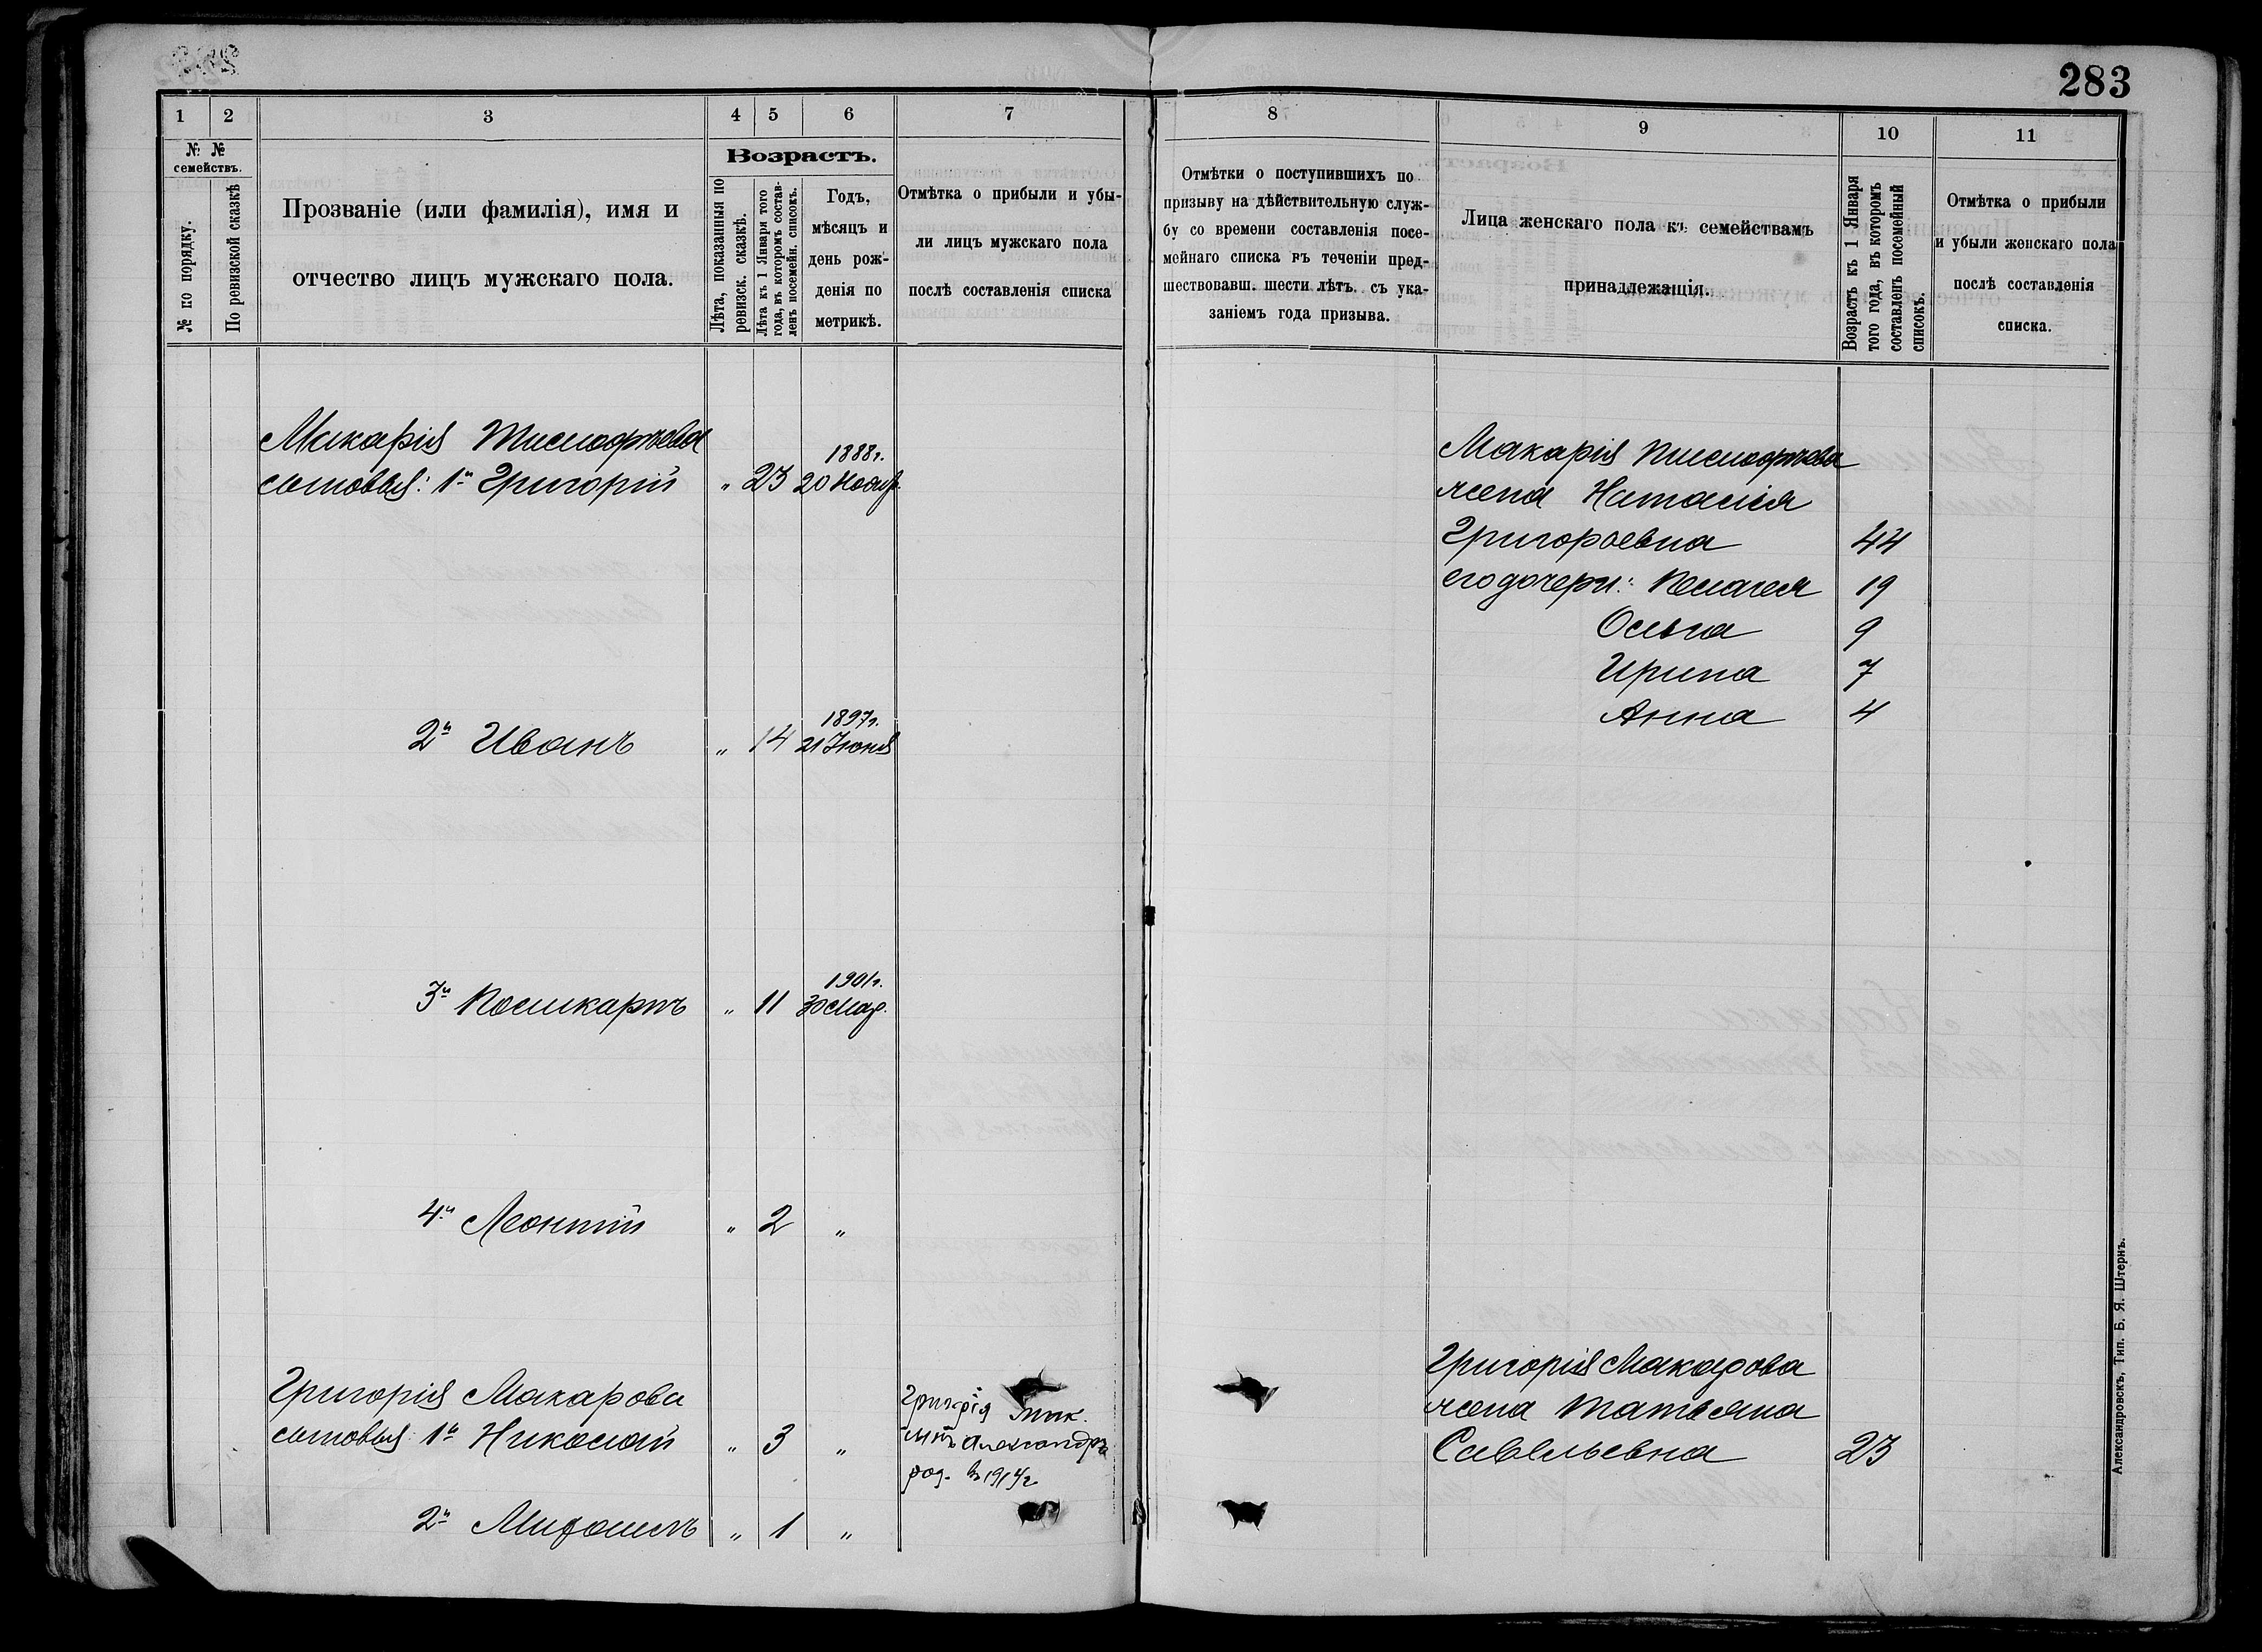 283
1 2 3 4 5 6 7
№ № семействъ.
№ по порядку.
По ревизской сказкѣ
Прозваніе (или фамилія), имя и
отчество лицъ мужскаго пола.
Возрастъ.
Лѣта, показанныя по
ревизск. сказкѣ.
Лѣта къ 1 Января того
года, въ которомъ состав-
ленъ посемейн. списокъ.
Годъ,
мѣсяцъ и
день рож-
денія по
метрикѣ.
Отмѣтка о прибыли и убы-
ли лицъ мужскаго пола
послѣ составленія списка
Макарія Тимофѣева
сыновья: 1й Григорій „ 23 1888г.
20 Нояб.
2й Иванъ „ 14 1897г.
21 Іюня
3й Поликарпъ „ 11 1901г.
30 Мар.
4й Леонтій „ 2 „
Григорія Макарова
сыновья: 1й Николай „ 3 „
Григорія Мак.
сынъ Александръ
род. въ 1914г
2й Михаилъ „ 1 „
8 9 10 11
Отмѣтки о поступившихъ по
призыву на дѣйствительную служ-
бу со времени составленія посе-
мейнаго списка въ теченіи пред-
шествовавш. шести лѣтъ съ ука-
заніемъ года призыва.
Лица женскаго пола къ семействамъ
принадлежащія.
Возрастъ къ 1 Января
того года, въ которомъ
составленъ посемейный
списокъ.
Отмѣтка о прибыли
и убыли женскаго пола
послѣ составленія
списка.
Макарія Тимофѣева
жена Наталія
Григорьевна 44
его дочери: Пелагея 19
Ольга 9
Ирина 7
Анна 4
Григорія Макарова
жена Татьяна
Савельевна 23
Александровскъ, Тип. Б. Я. Штернъ.